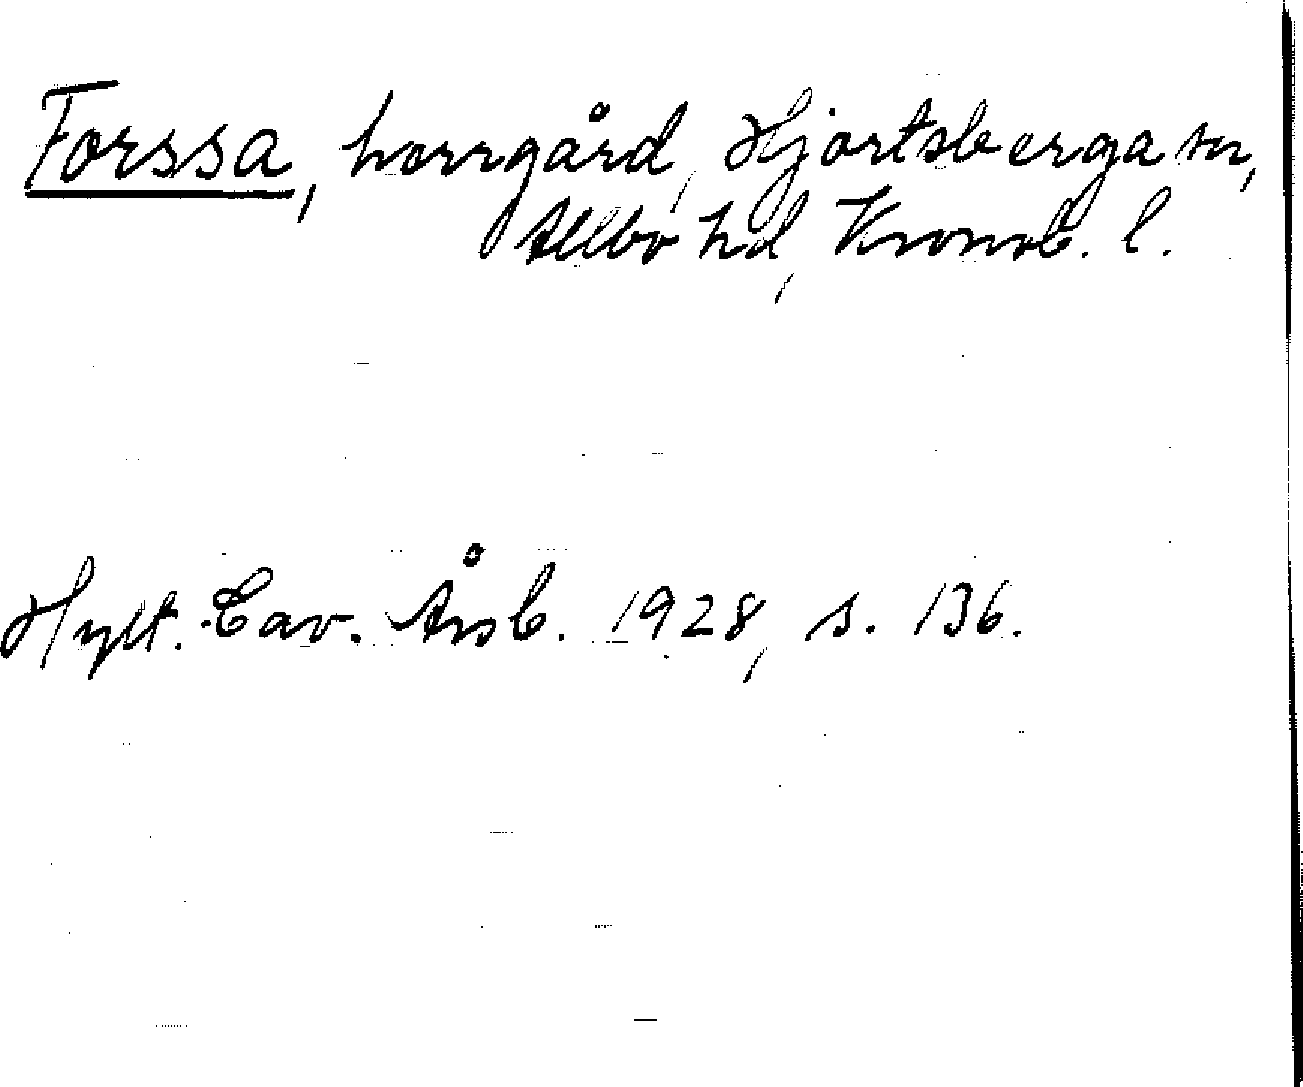 Forssa, herrgård, Hjortsberga sn,
Allbo hd, Kronob. l.
Hylt. Cav. Årsb. 1928, s. 136.